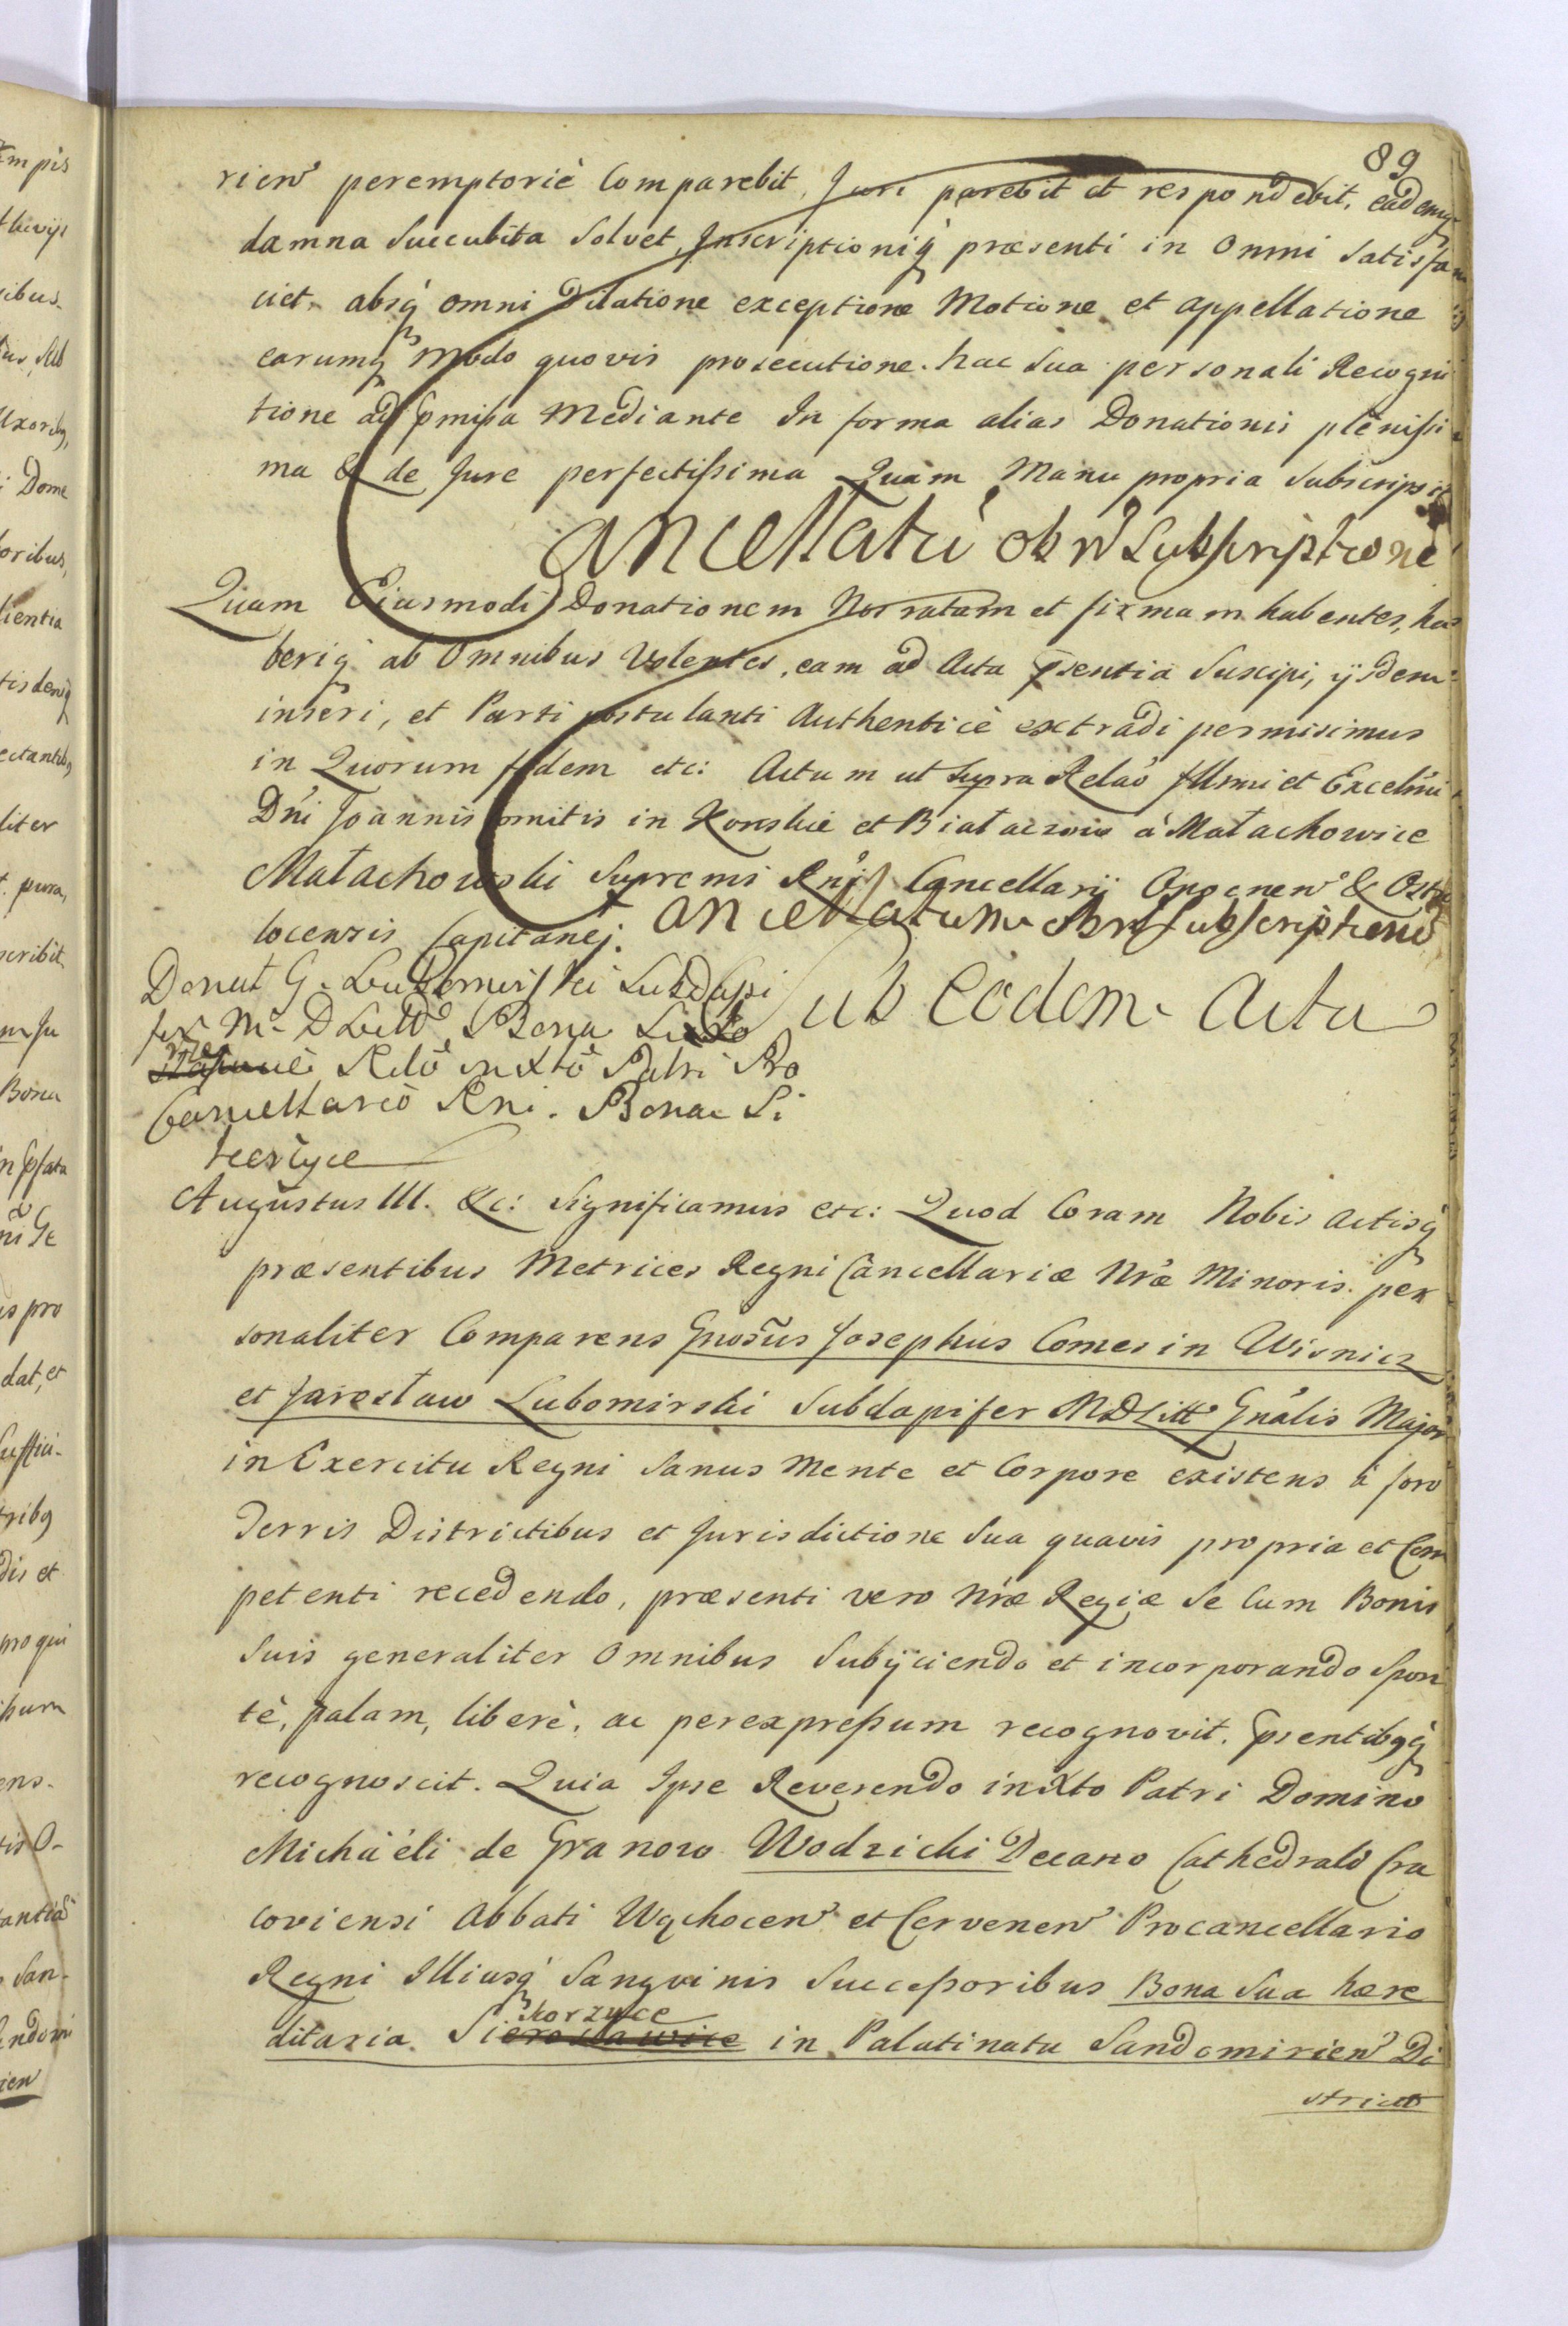 89
rien̄ peremptoriè Comparebit, Juri parebit et respondebit, eademq́
damna Succubita Solvet Inscriptioniq́ præsenti in Omni Satisfa
ciet. absq́ omni Dilatione exceptione Motione et appellatione
earumq́ Modo quovis prosecutione. hac Sua personali Recogni
tione ad p̄mißa Mediante In forma alias Donationis plenißi
ma & de Jure perfectißima Quam Manu propria Subscripsit
Cancellatū ob n̄ Subscriptione
Quam Eiusmodi Donationem Nos ratam et firmam habentes, ha
beriq́ ab Omnibus Volentes, eam ad Acta p̄sentia Suscipi, ijsdem
inseri, et Parti postulanti Authenticè extradi permisimus
in Quorum fidem etc: Actum ut Supra Relaō Illmi et Excelm̄i
Dn̄i Joannis Comitis in Konskie et Białaczow à Małachowice
Małachowski Supremi Rnī Cancellarij Opocnen̄ & Ostro
locensis Capitanej. Cancellatum ob n̄ Subscriptione
Donat G. Lubomirski Subdapi
fer M. D Litt̄ Bona
Sub eodem Actu
Rdō in Xtō Patri Pro
Cancellariō Rni. Bona Si
korzyce
Augustus III. &c: Significamus etc: Quod Coram Nobis Actisq́
præsentibus Metrices Regni Cancellariæ Nræ Minoris. per
sonaliter Comparens Gnosus Josephus Comes in Wisnicz
et Jarosław Lubomirski Subdapifer MDLitt̄ Gnālis Major
in Exercitu Regni Sanus Mente et Corpore existens à foro
Terris Districtibus et Jurisdictione Sua quavis propria et Com
petenti recedendo, præsenti vero Nræ Regiæ Se Cum Bonis
Suis generaliter Omnibus Subijciendo et incorporando Spon
tè, palam, liberè, ac per expreßum recognovit. p̄sentibgq́
recognoscit. Quia Ipse Reverendo in Xto Patri Domino
Michaéli de Granow Wodzicki Decano Cathedrali Cra
coviensi Abbati Wąchocen̄ et Cervenen̄ Procancellario
Regni Illiusq́ Sangvinis Succeßoribus Bona Sua hære
korzyce
ditaria Sierosławice in Palatinatu Sandomirien̄ Di
strict